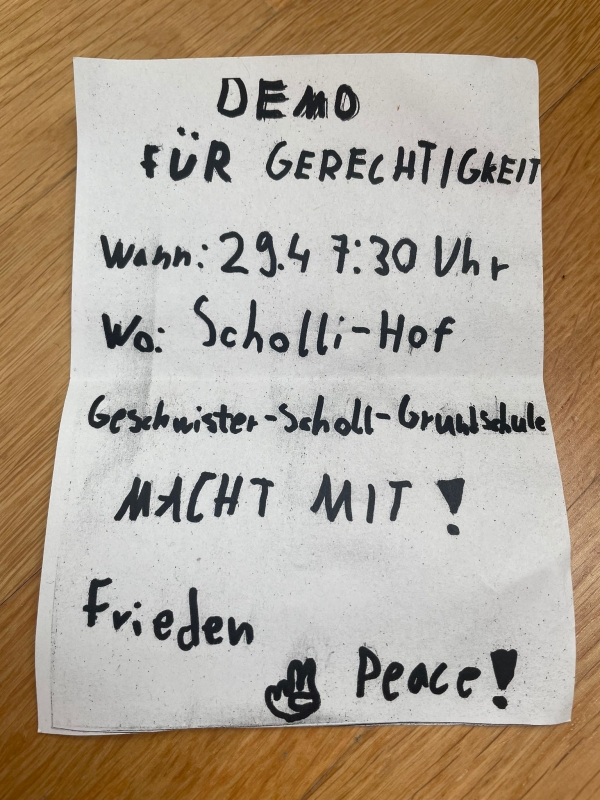 DEMO
FÜR GERECHTIGKEIT
Wann: 29.4 7:30 Uhr
Wo: Scholli-Hof
Geschwister-Scholl-Grundschule
MACHT MIT!
Frieden
Peace!